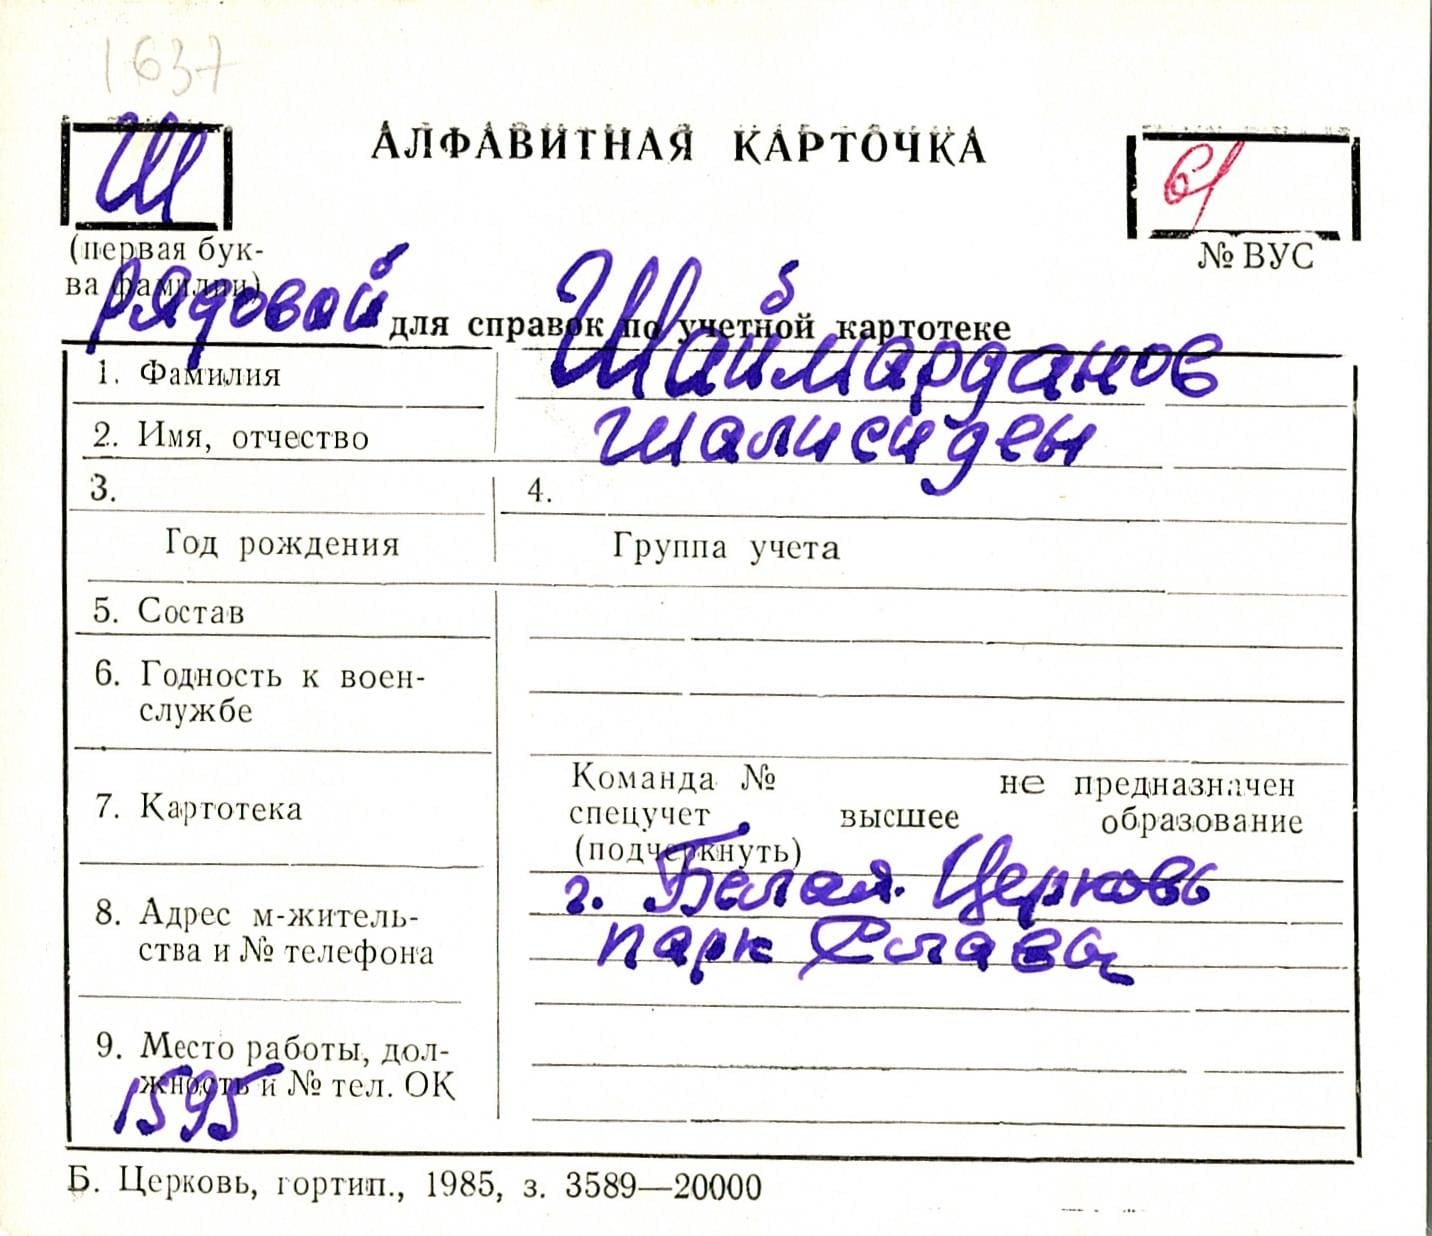 1637
Ш
АЛФАВИТНАЯ КАРТОЧКА
61
(первая бук-
ва фамилии)
№ ВУС
рядовой
для справок по учетной картотеке
1. Фамилия
Шаймарданов
2. Имя, отчество
Шалисиден
3.
4.
Год рождения
Группа учета
5. Состав
6. Годность к воен-
службе
7. Картотека
Команда № не предназначен
спецучет высшее образование
(подчеркнуть)
8. Адрес м-житель-
ства и № телефона
г. Белая Церковь
парк Славы
9. Место работы, дол-
жность и № тел. ОК
1595
Б. Церковь, гортип., 1985, з. 3589—20000